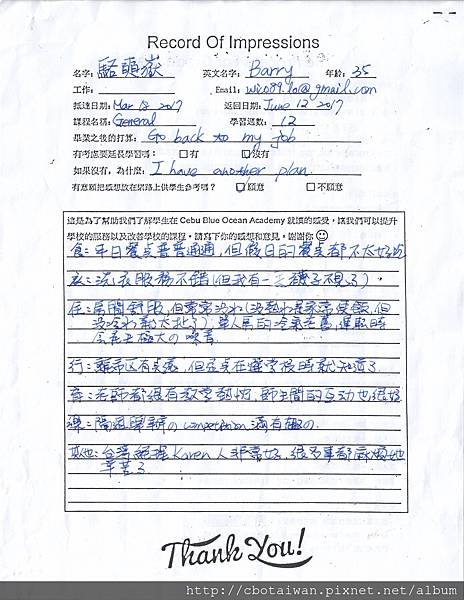 Record Of Impressions
名字: 駱奭嶽 英文名字: Barry 年齡: 35
工作: Email: wico89.lo@gmail.com
抵達日期: Mar 18 2017 返回日期: June 12 2017
課程名稱: General 學習週數: 12
畢業之後的打算: Go back to my job
有考慮要延長學習嗎: □有 ☑沒有
如果沒有, 為什麼: I have another plan.
有意願把感想放在網路上供學生參考嗎? ☑願意 □不願意
這是為了幫助我們了解學生在 Cebu Blue Ocean Academy 就讀的感受,讓我們可以提升
學校的服務以及改善學校的課程。請寫下你的感想和意見,謝謝你☺
食:平日餐点普普通通,但假日的餐点都不太好吃
衣:洗衣服務不錯(但我有一支襪子不見了).
住:房間舒服,但常常沒水(沒熱水是家常便飯,但
沒冷水就太扯了).單人房的冷氣老舊,運轉時
会發出極大の噪音
行:離市区有点遠,但這点在選學校時就知道了.
育:老師都很有教學熱忱,師生間的互动也很好
樂:開週舉辦の competition 滿有趣の.
其他:台灣經理Karen人非常好,很多事都麻煩她
辛苦了
Thank You!
http://cbotaiwan.pixnet.net/album